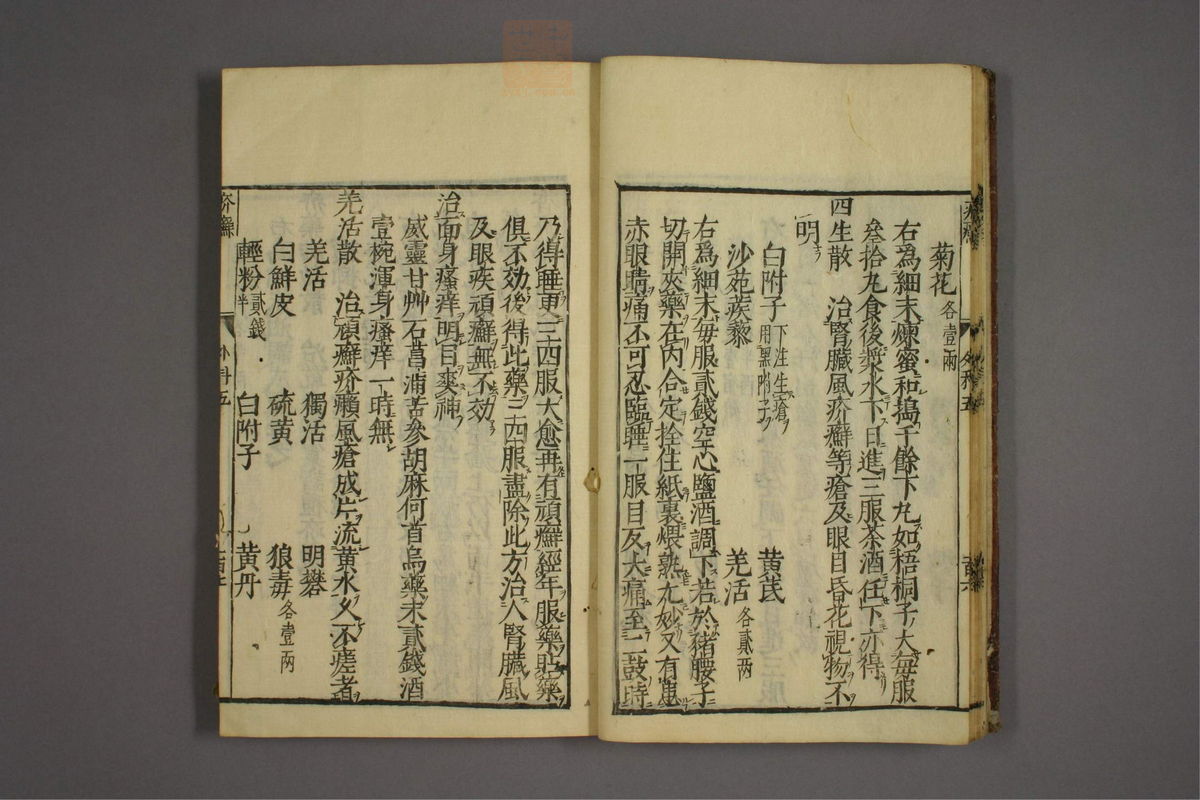 菊花各壹兩
右爲細末煉蜜和搗千餘下丸如梧桐子大每服
叄拾丸食後漿水下日進三服茶酒任下亦得
四生散 治腎臟風疥癬等瘡及眼目昏花視物不
明
白附子下注生瘡用黑附子 黃芪
沙苑蒺藜 羌活各貳兩
右爲細末每服貳錢空心鹽酒調下若於猪腰子
切開夾藥在內合定拴住紙裹煨熟尤妙又有患
赤眼睛痛不可忍臨睡一服目反大痛至二皷時
乃得睡更三四服大愈再有頑癬經年服藥貼藥
俱不効後得此藥三四服盡除此方治人腎臟風
及眼疾頑癬無不効
治面身瘙痒明目爽神
威靈甘艸石菖蒲苦參胡麻何首烏藥末貳錢酒
壹椀渾身瘙痒一時無
羌活散 治頑癬疥癩風瘡成片流黃水久不瘥者
羌活 獨活 明礬
白鮮皮 硫黃 狼毒各壹兩
輕粉貳錢半 白附子 黃丹
疥癬
外科五